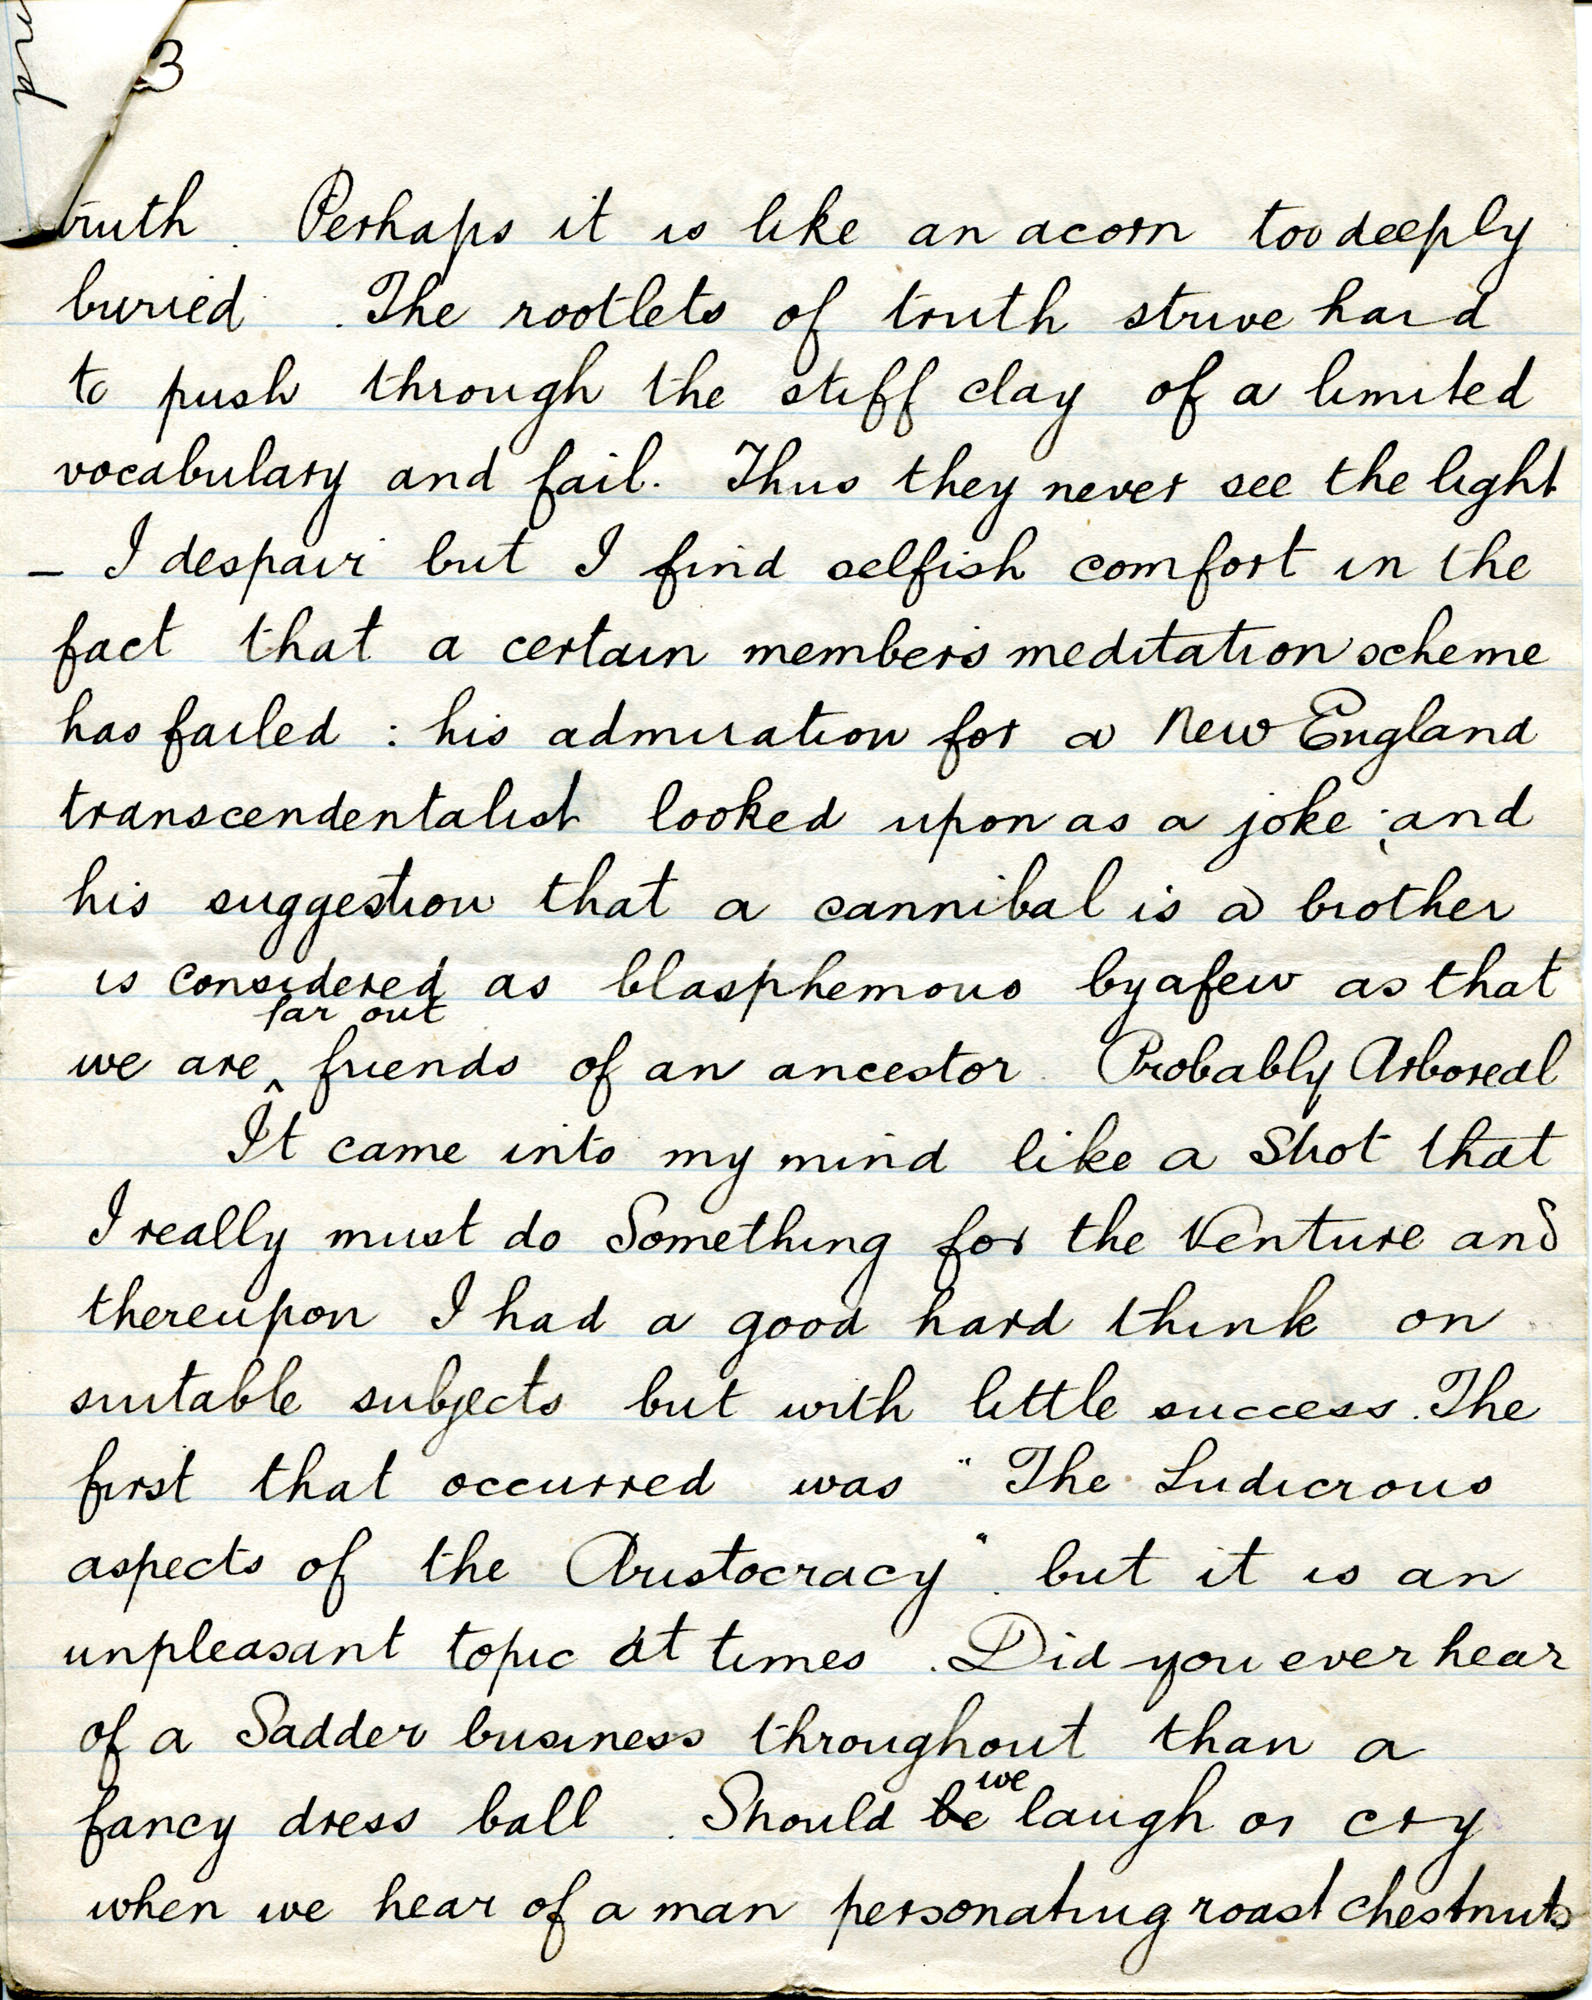 3
truth. Perhaps it is like an acorn too deeply
buried. The rootlets of truth strive hard
to push through the stiff clay of a limited
vocabulary and fail. Thus they never see the light
- I despair but I find selfish comfort in the
fact that a certain members meditation scheme
has failed : his admiration for a New England
transcendentalist looked upon as a joke ; and
his suggestion that a cannibal is a brother
is considered as blasphemous by a few as that
far out
we are ^ friends of an ancestor Probably Arboreal
It came into my mind like a shot that
I really must do Something for the Venture and
thereupon I had a good hard think on
suitable subjects but with little success. The
first that occurred was "The Ludicrous
aspects of the Aristocracy" but it is an
unpleasant topic at times. Did you ever hear
of a Sadder business throughout than a
we
fancy dress ball. Should be laugh or cry
when we hear of a man personating roast chestnuts